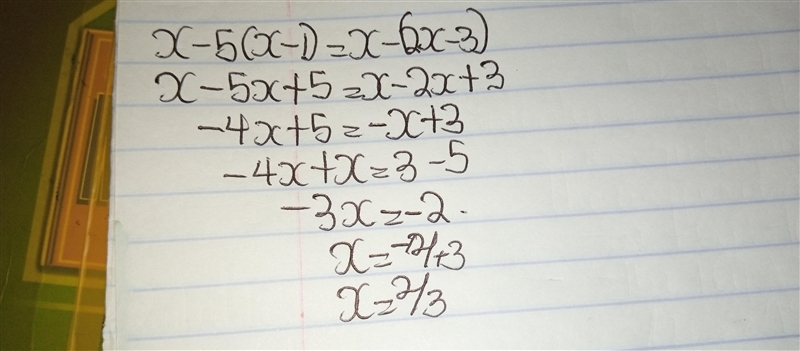 x-5(x-1)=x-(2x-3)
x-5x+5=x-2x+3
-4x+5=-x+3
-4x+x=3-5
-3x=-2.
x=-2/+3
x=2/3